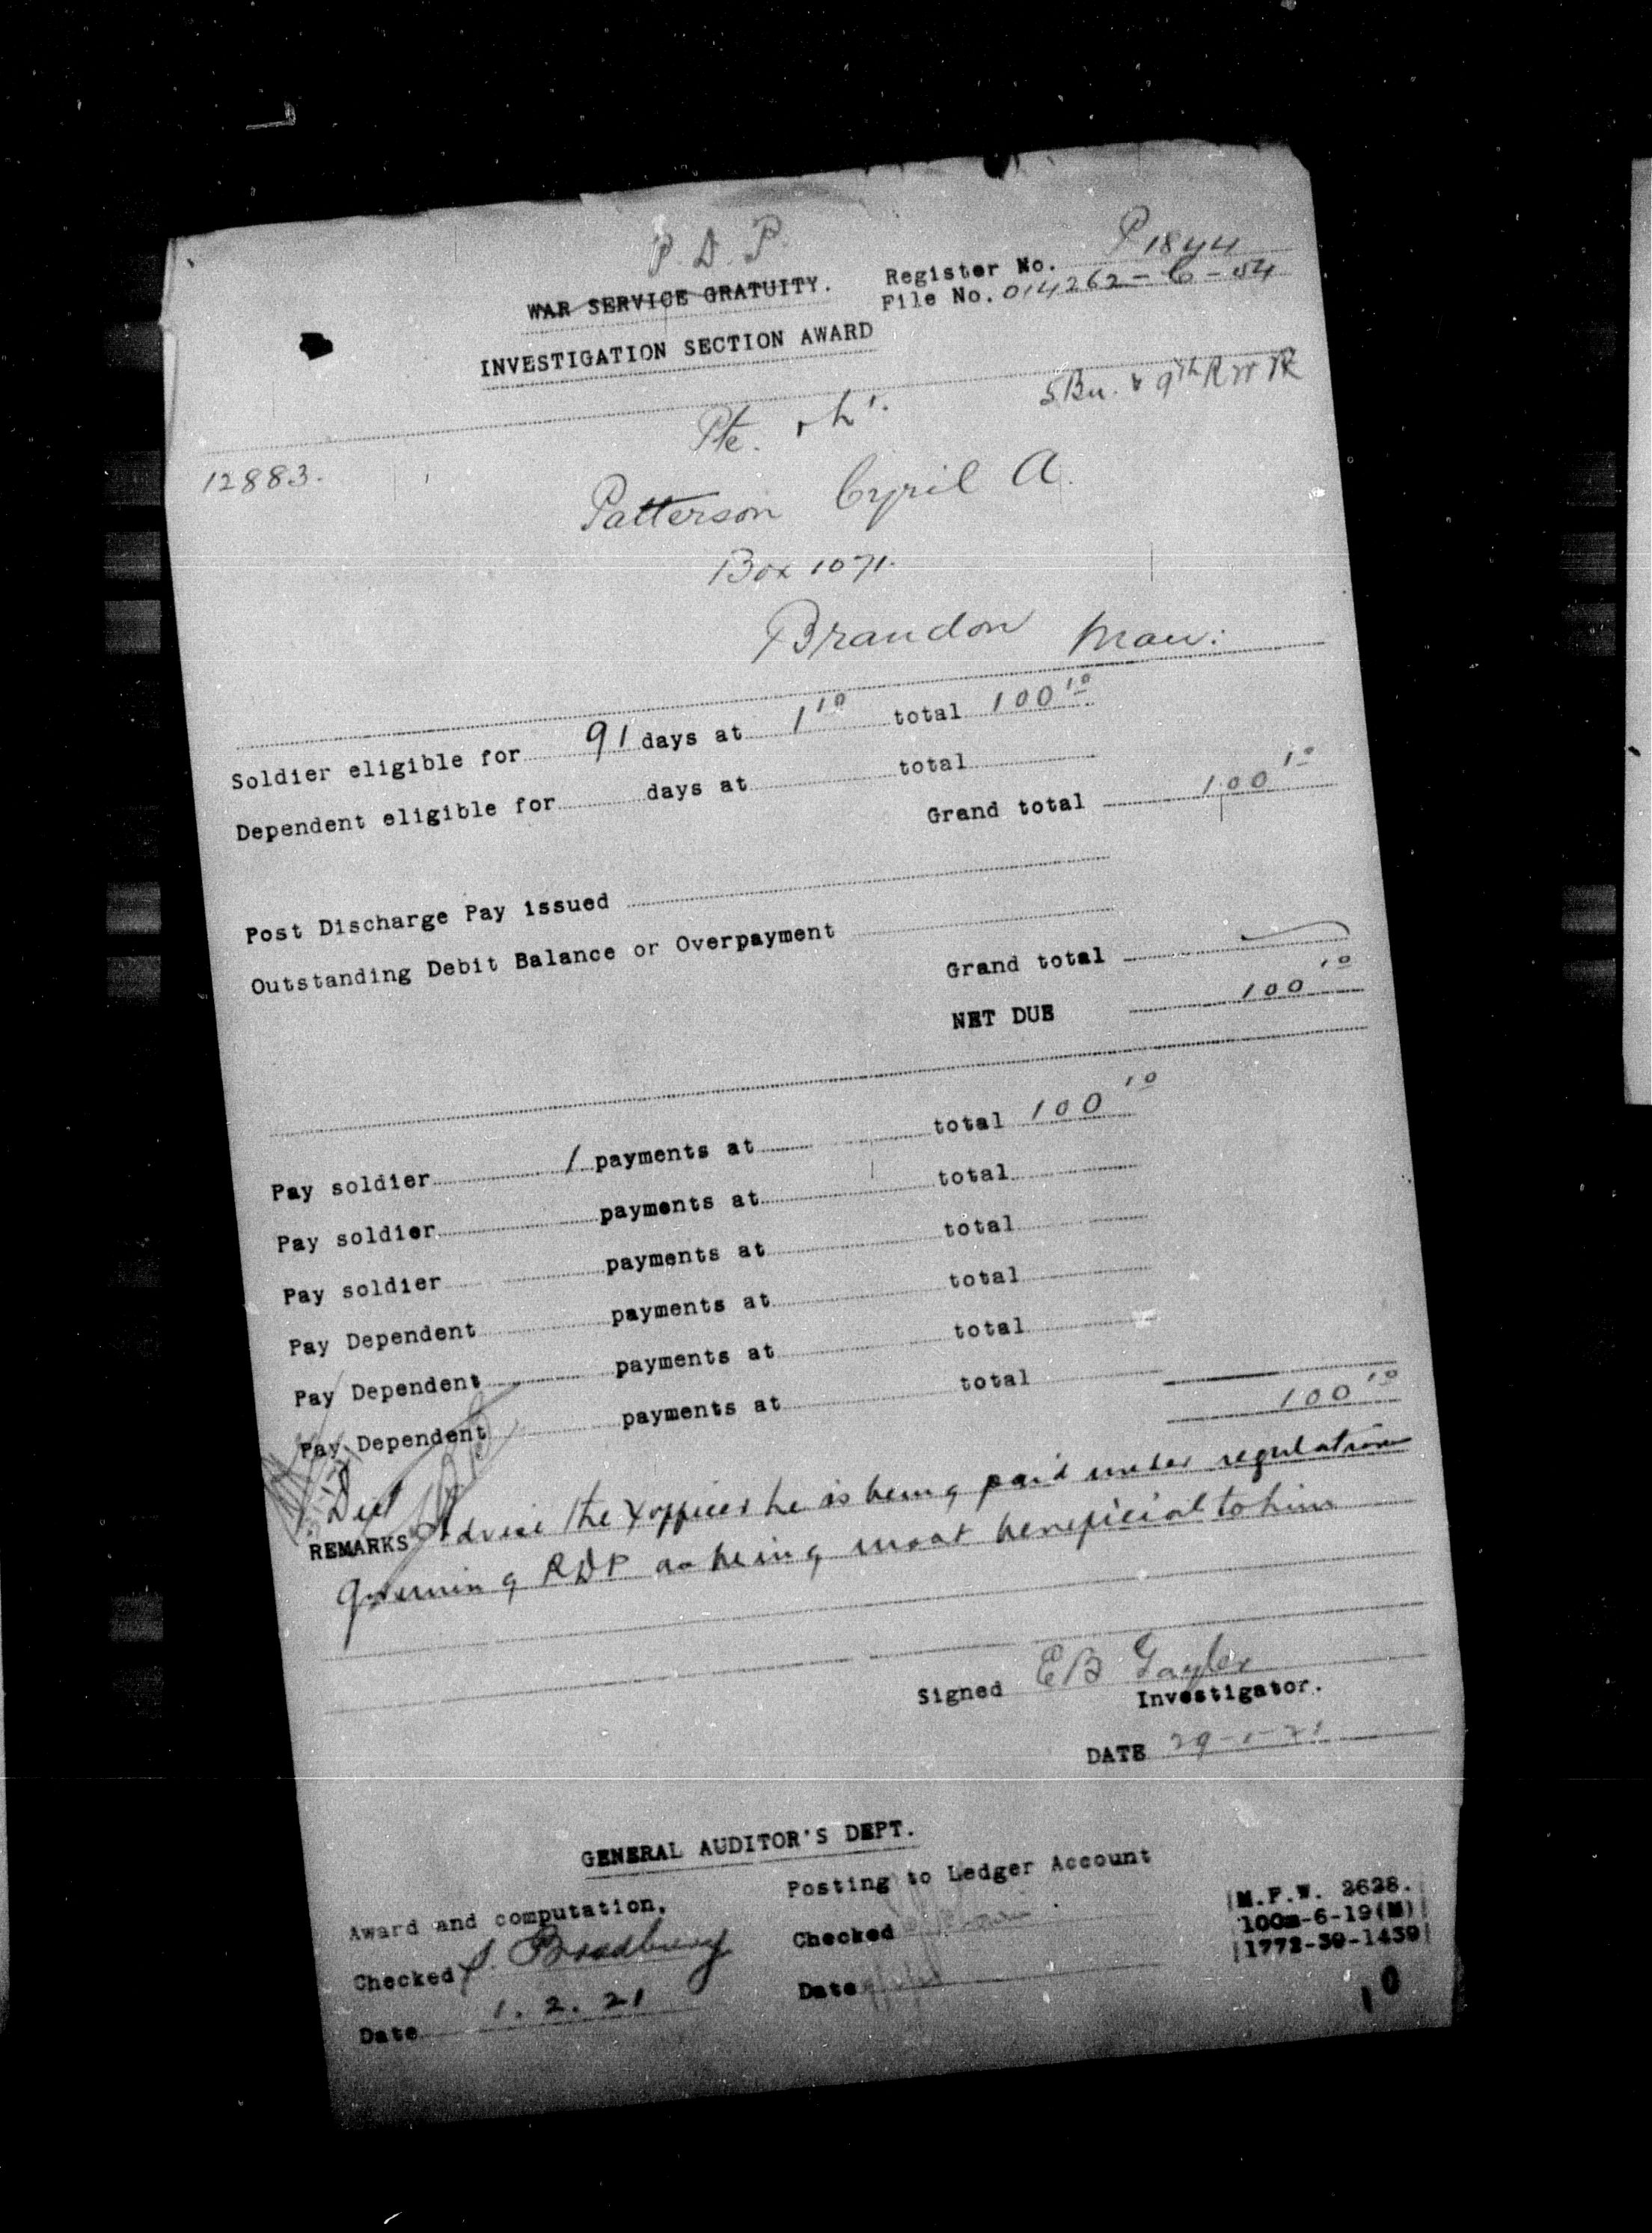 P. D. P.
WAR SERVICE GRATUITY.
Register No. P1844
File No. 014262-C-54
INVESTIGATION SECTION AWARD
5 Bn. & 9th R W R
Pte. & Lt.
12883.
Patterson Cyril A.
Box 1071.
Brandon Man:
Soldier eligible for 91 days at 1 10 total 100 10
Dependent eligible for days at total
Grand total 100 10
Post Discharge Pay issued
Outstanding Debit Balance or Overpayment
Grand total
NET DUE 100 10
Pay soldier 1 payments at total 100 10
Pay soldier payments at total
Pay soldier payments at total
Pay Dependent payments at total
Pay Dependent payments at total
Pay Dependent payments at total
100 10
REMARKS Advise the X officer he is being paid under regulation
governing PDP as being most beneficial to him
Signed EB Gayler
Investigator.
DATE 29-1-21
GENERAL AUDITOR'S DEPT.
Award and computation.
Posting to Ledger Account
Checked S. Bradbury
Checked
Date 1.2.21
Date
M.F.W. 2628.
100m-6-19(M)
1772-39-1439
10